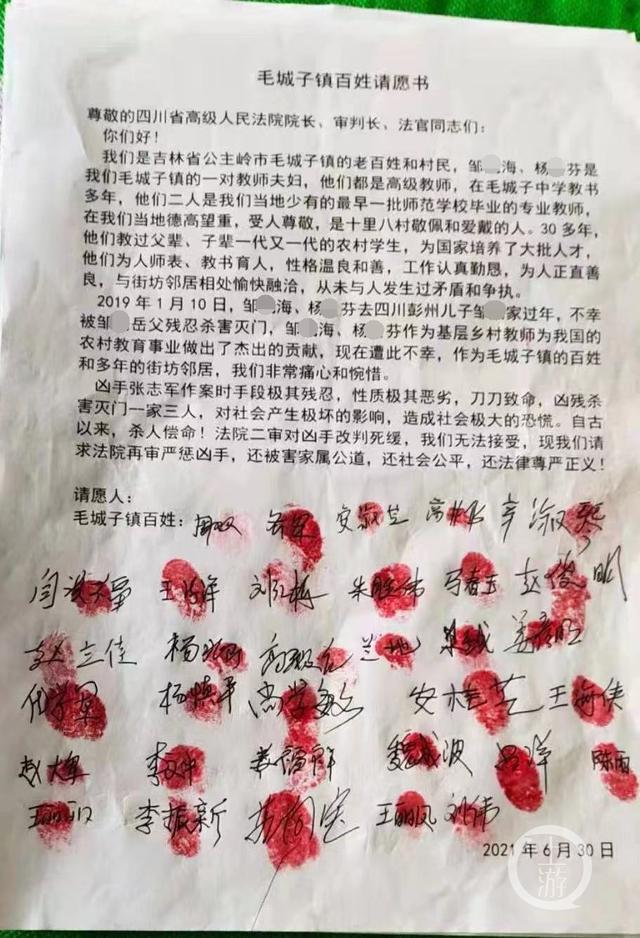 毛城子镇百姓请愿书
尊敬的四川省高级人民法院院长、审判长、法官同志们：
你们好！
我们是吉林省公主岭市毛城子镇的老百姓和村民，邹海、杨芬是
我们毛城子镇的一对教师夫妇，他们都是高级教师，在毛城子中学教书
多年，他们二人是我们当地少有的最早一批师范学校毕业的专业教师，
在我们当地德高望重，受人尊敬，是十里八村敬佩和爱戴的人。30 多年，
他们教过父辈、子辈一代又一代的农村学生，为国家培养了大批人才，
他们为人师表、教书育人，性格温良和善，工作认真勤恳，为人正直善
良，与街坊邻居相处愉快融洽，从未与人发生过矛盾和争执。
2019 年 1 月 10 日，邹海、杨芬去四川彭州儿子邹家过年，不幸
被邹岳父残忍杀害灭门，邹海、杨芬作为基层乡村教师为我国的
农村教育事业做出了杰出的贡献，现在遭此不幸，作为毛城子镇的百姓
和多年的街坊邻居，我们非常痛心和惋惜。
凶手张志军作案时手段极其残忍，性质极其恶劣，刀刀致命，凶残杀
害灭门一家三人，对社会产生极坏的影响，造成社会极大的恐慌。自古
以来，杀人偿命！法院二审对凶手改判死缓，我们无法接受，现我们请
求法院再审严惩凶手，还被害家属公道，还社会公平，还法律尊严正义！
请愿人：
毛城子镇百姓：
朱胜伟 马春玉 赵俊明
赵立佳
安桂芝 王海侠
魏成波 吕洋 陈雨
李振新 王丽凤 刘伟
2021 年 6 月 30 日
上游